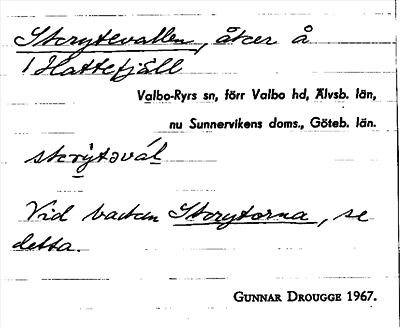 Skrytevallen, åker å
1 Hattefjäll
Valbo-Ryrs sn, förr Valbo hd, Älvsb. län,
nu Sunnervikens doms., Göteb. län.
skrỳtəvál
Vid backen Skrytorna, se
detta.
GUNNAR DROUGGE 1967.